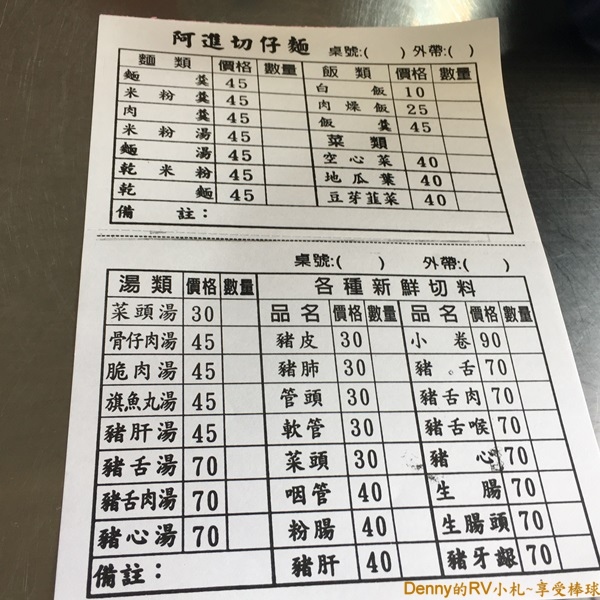 阿進切仔麵 桌號:( ) 外帶:( )
麵類 價格 數量 飯類 價格 數量
麵羹 45 白飯 10
米粉羹 45 肉燥飯 25
肉羹 45 飯羹 45
米粉湯 45 菜類
麵湯 45 空心菜 40
乾米粉 45 地瓜葉 40
乾麵 45 豆芽韮菜 40
備註：
桌號:( ) 外帶:( )
湯類 價格 數量 各種新鮮切料
菜頭湯 30 品名 價格 數量 品名 價格 數量
骨仔肉湯 45 豬皮 30 小卷 90
脆肉湯 45 豬肺 30 豬舌 70
旗魚丸湯 45 管頭 30 豬舌肉 70
豬肝湯 45 軟管 30 豬舌喉 70
豬舌湯 70 菜頭 30 豬心 70
豬舌肉湯 70 咽管 40 生腸 70
豬心湯 70 粉腸 40 生腸頭 70
備註： 豬肝 40 豬牙齦 70
Denny的RV小札~享受棒球